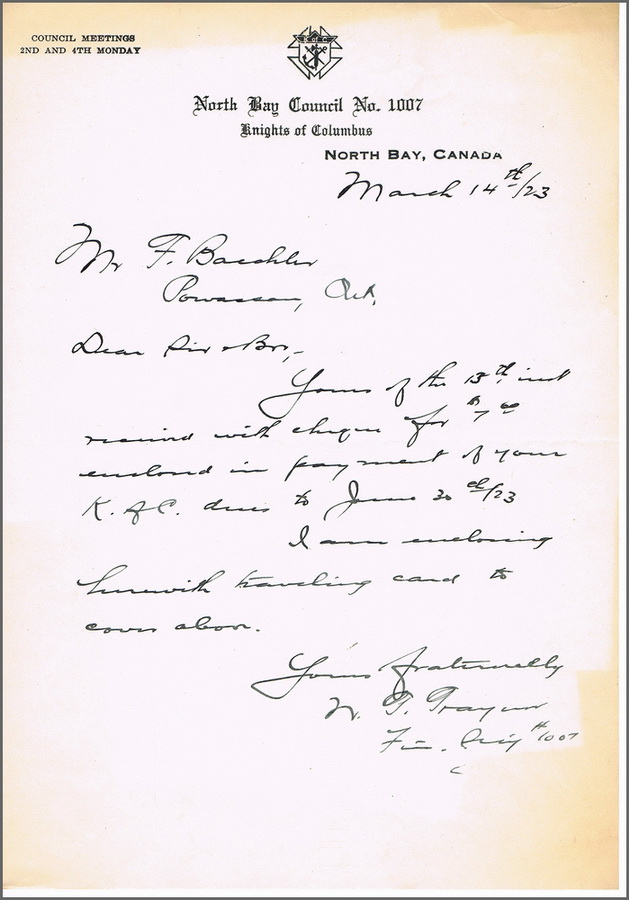 COUNCIL MEETINGS
2ND AND 4TH MONDAY
K of C
North Bay Council No. 1007
Knights of Columbus
NORTH BAY, CANADA
March 14th/23
Mr F. Baechler
Powassan, Ont.
Dear Sir & Bro,-
Yours of the 13th inst
received with cheque for $7.00
enclosed in payment of your
K. of C. dues to June 30th/23
I am enclosing
herewith traveling card to
cover above.
Yours fraternally
T. Traynor
Fin. #1007